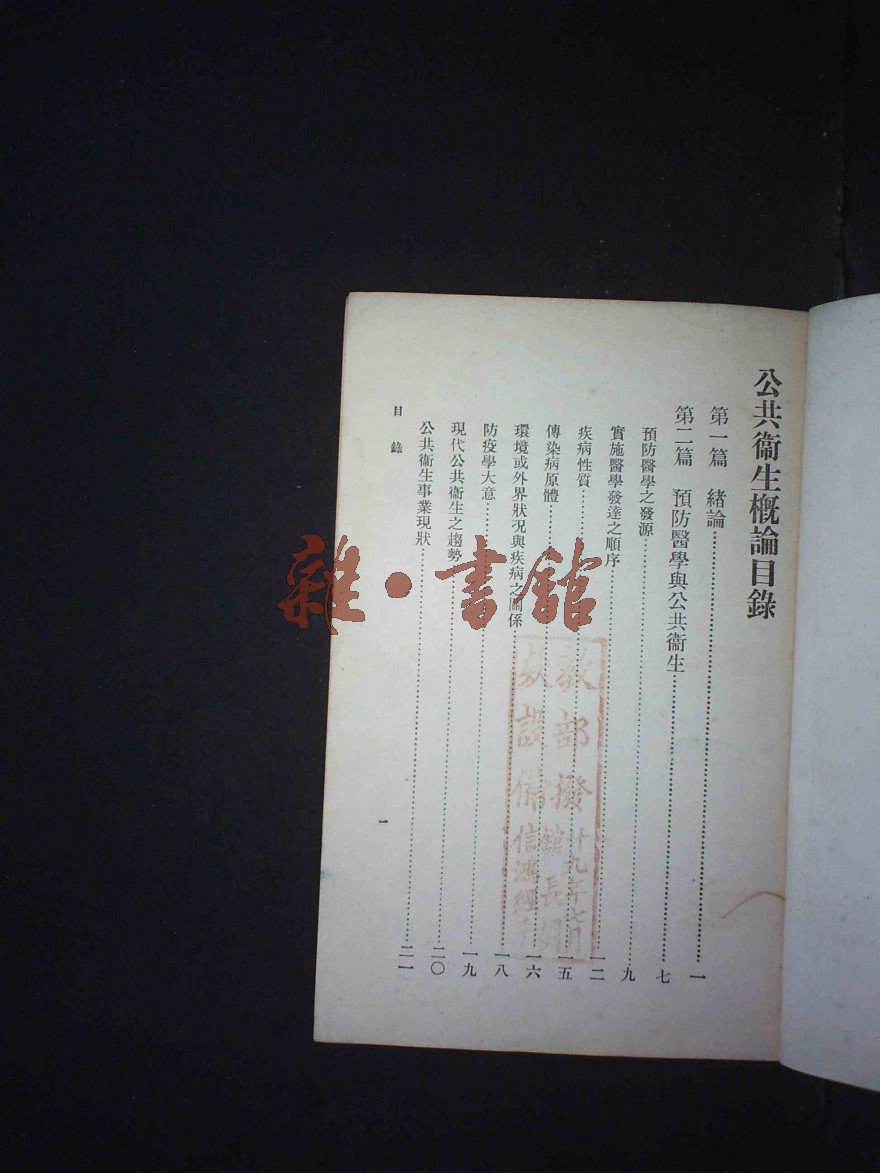 公共衞生概論目錄
第一篇 緒論 一
第二篇 預防醫學與公共衞生 七
預防醫學之發源 九
實施醫學發達之順序 一二
疾病性質 一五
傳染病原體 一六
環境或外界狀况與疾病之關係 一八
防疫學大意 一九
現代公共衞生之趨勢 二〇
公共衞生事業現狀 二一
目錄
一
雜·書館
教部撥
設備
廿九年七月
館長
信鴻經手